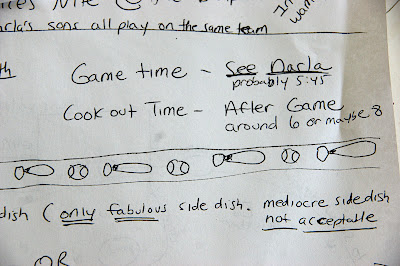 Nite @ the
arla's sons all play on the same team
Game time - See Darla
probably 5:45
Cook out Time - After Game
around 6 or maybe 8
dish (only fabulous side dish. mediocre side dish
not acceptable
OR